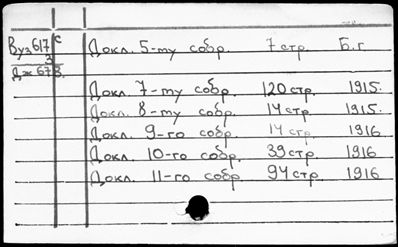 Вуз617 с Докл. 5-му собр. 7 стр. Б.г.
3
Дж673. Докл. 7-му собр. 120 стр. 1915.
Докл. 8-му собр. 14 стр. 1915.
Докл. 9-го собр. 14 стр. 1916
Докл. 10-го собр. 39 стр. 1916
Докл. 11-го собр. 94 стр. 1916